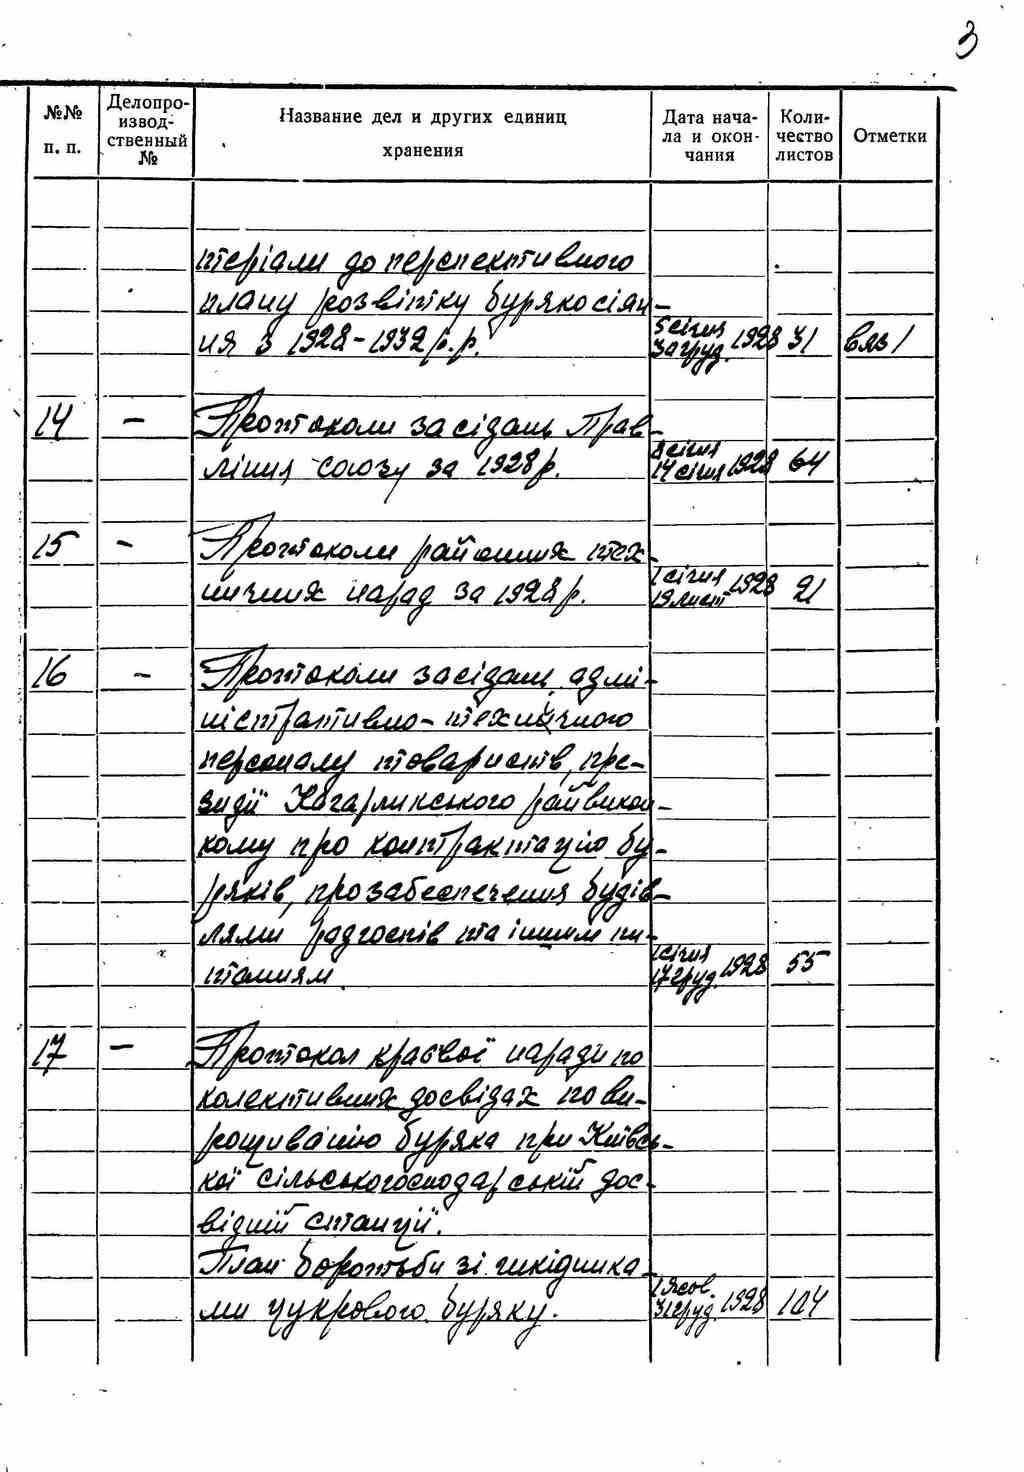 3
№№ п. п.
Делопро-
извод-
ственный
№
Название дел и других единиц
хранения
Дата нача-
ла и окон-
чания
Коли-
чество
листов
Отметки
теріали до перспективного
плану розвітку бурякосіян-
ня з 1928-1932 р.р.
5 січня
30 груд. 1928 31
14 - Протоколи засідань Прав-
ління союзу за 1928 р.
8 січня
14 січня 1928 64
15 - Протоколи районних тех-
нічних нарад за 1928 р.
1 січня
19 лист 1928 21
16 - Протоколи засідань адмі-
ністративно-технічного
персоналу товариств, пре-
зидії Кагарликського райвикон-
кому про контрактацію бу-
ряків, про забеспечення будів-
лями радгоспів та іншим пи-
танням.
1 січня
17 груд. 1928 55
17 - Протокол краєвої наради по
колективних досвідах по ви-
рощиванію буряка при Київсь-
кої сільськогосподарській дос-
відній станції.
План боротьби зі шкідника-
ми цукрового буряку.
31 груд. 1928 104